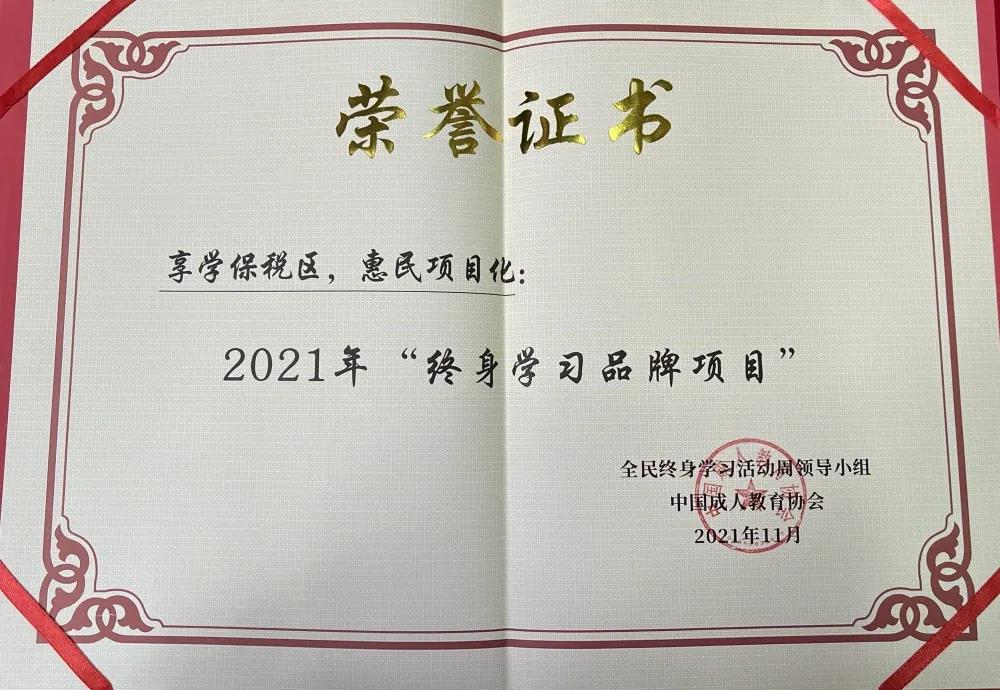 荣誉证书
享学保税区，惠民项目化：
2021年“终身学习品牌项目”
全民终身学习活动周领导小组
中国成人教育协会
2021年11月
中国成人教育协会